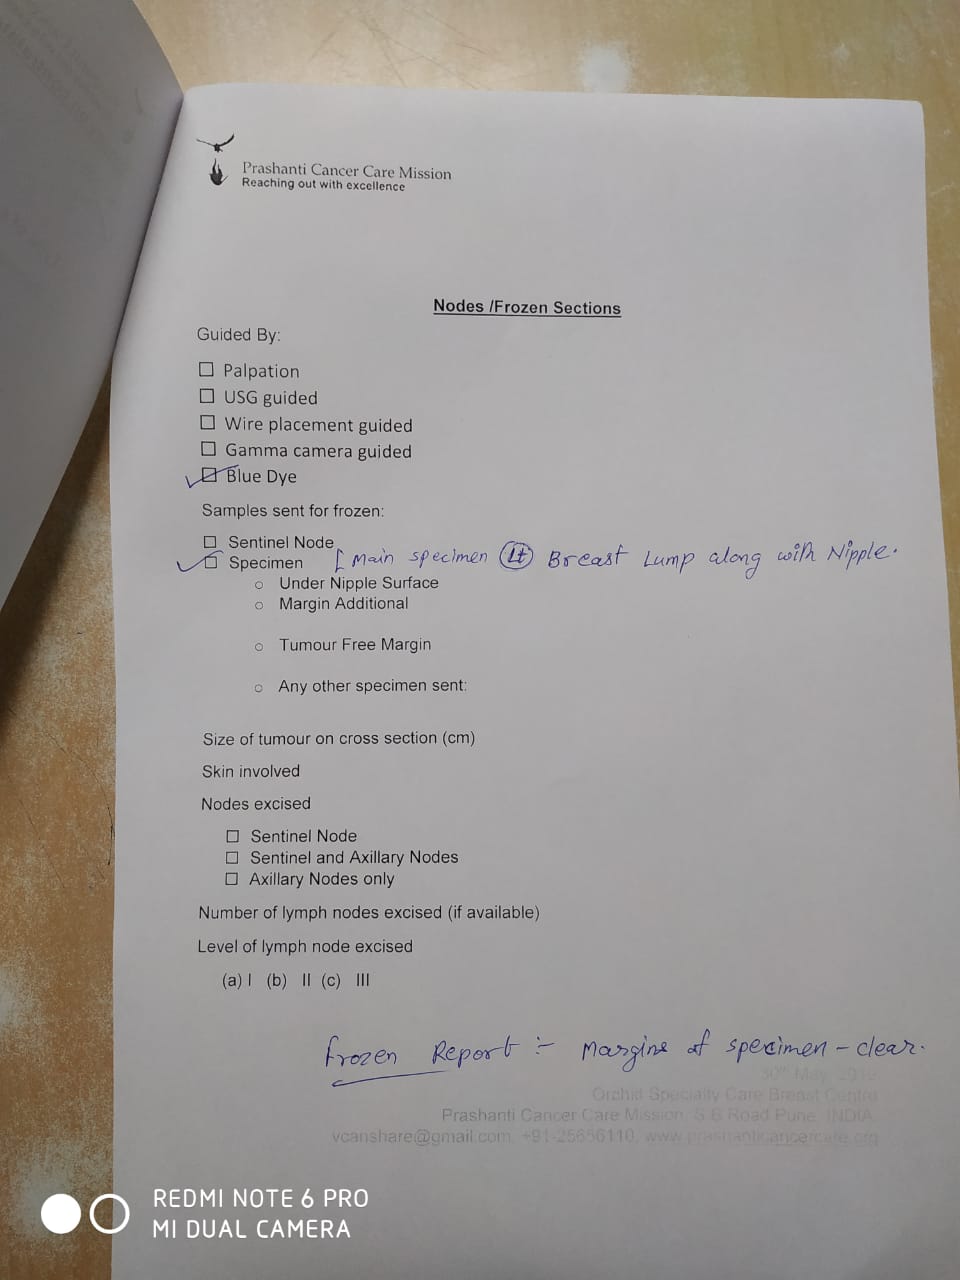 Prashanti Cancer Care Mission
Reaching out with excellence
Nodes /Frozen Sections
Guided By:
☐ Palpation
☐ USG guided
☐ Wire placement guided
☐ Gamma camera guided
☑ Blue Dye
Samples sent for frozen:
☐ Sentinel Node
☑ Specimen [ Main specimen (Lt) Breast Lump along with Nipple.
○ Under Nipple Surface
○ Margin Additional
○ Tumour Free Margin
○ Any other specimen sent:
Size of tumour on cross section (cm)
Skin involved
Nodes excised
☐ Sentinel Node
☐ Sentinel and Axillary Nodes
☐ Axillary Nodes only
Number of lymph nodes excised (if available)
Level of lymph node excised
(a) I (b) II (c) III
Frozen Report :- Margins of specimen - clear.
30th May, 2019
Orchid Specialty Care Breast Centre
Prashanti Cancer Care Mission, S B Road Pune, INDIA
vcanshare@gmail.com, +91-25656110, www.prashanticancercare.org
REDMI NOTE 6 PRO
MI DUAL CAMERA